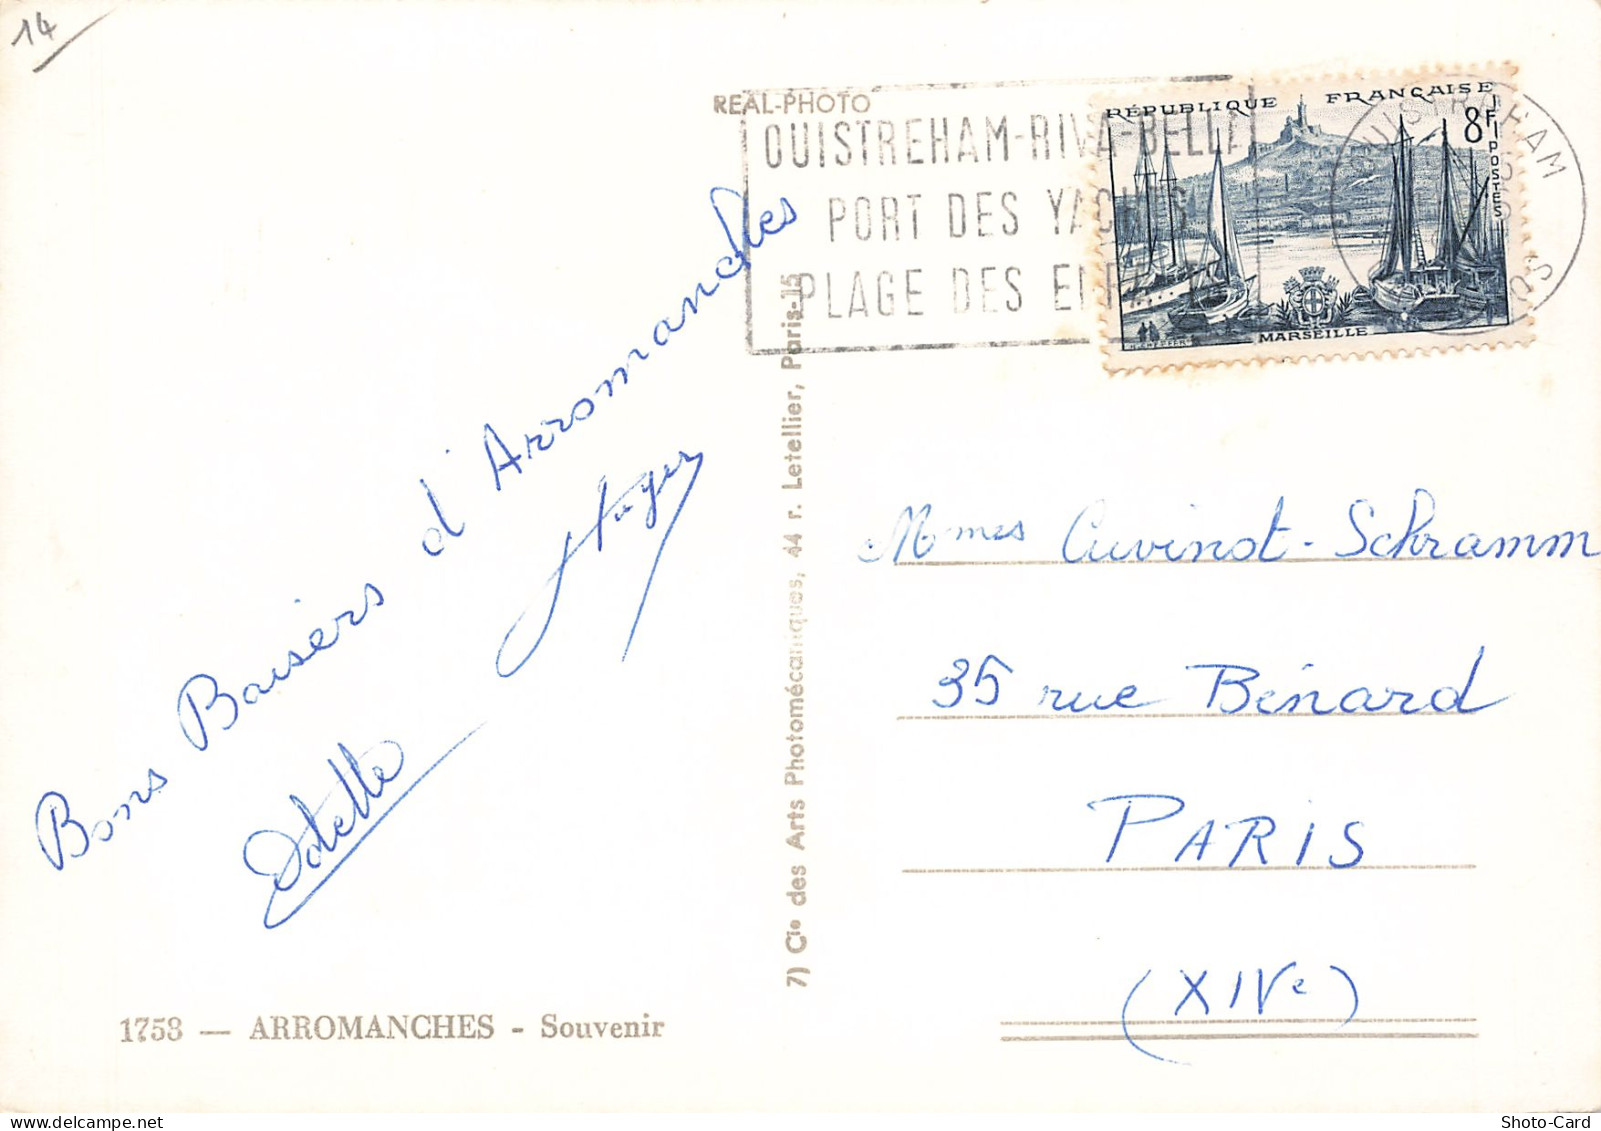 14
REAL-PHOTO
OUISTREHAM-RIVA-BELLA
PORT DES YACHTS
PLAGE DES ENFANTS
RÉPUBLIQUE FRANÇAISE
8F
POSTES
MARSEILLE
OUISTREHAM
Bons Baisers d'Arromanches
Odette
Mmes Cuvinot-Schramm
35 rue Bénard
PARIS
(XIVe)
7) Cie des Arts Photomécaniques, 44 r. Letellier, Paris-15
1753 — ARROMANCHES - Souvenir
Shoto-Card
www.delcampe.net